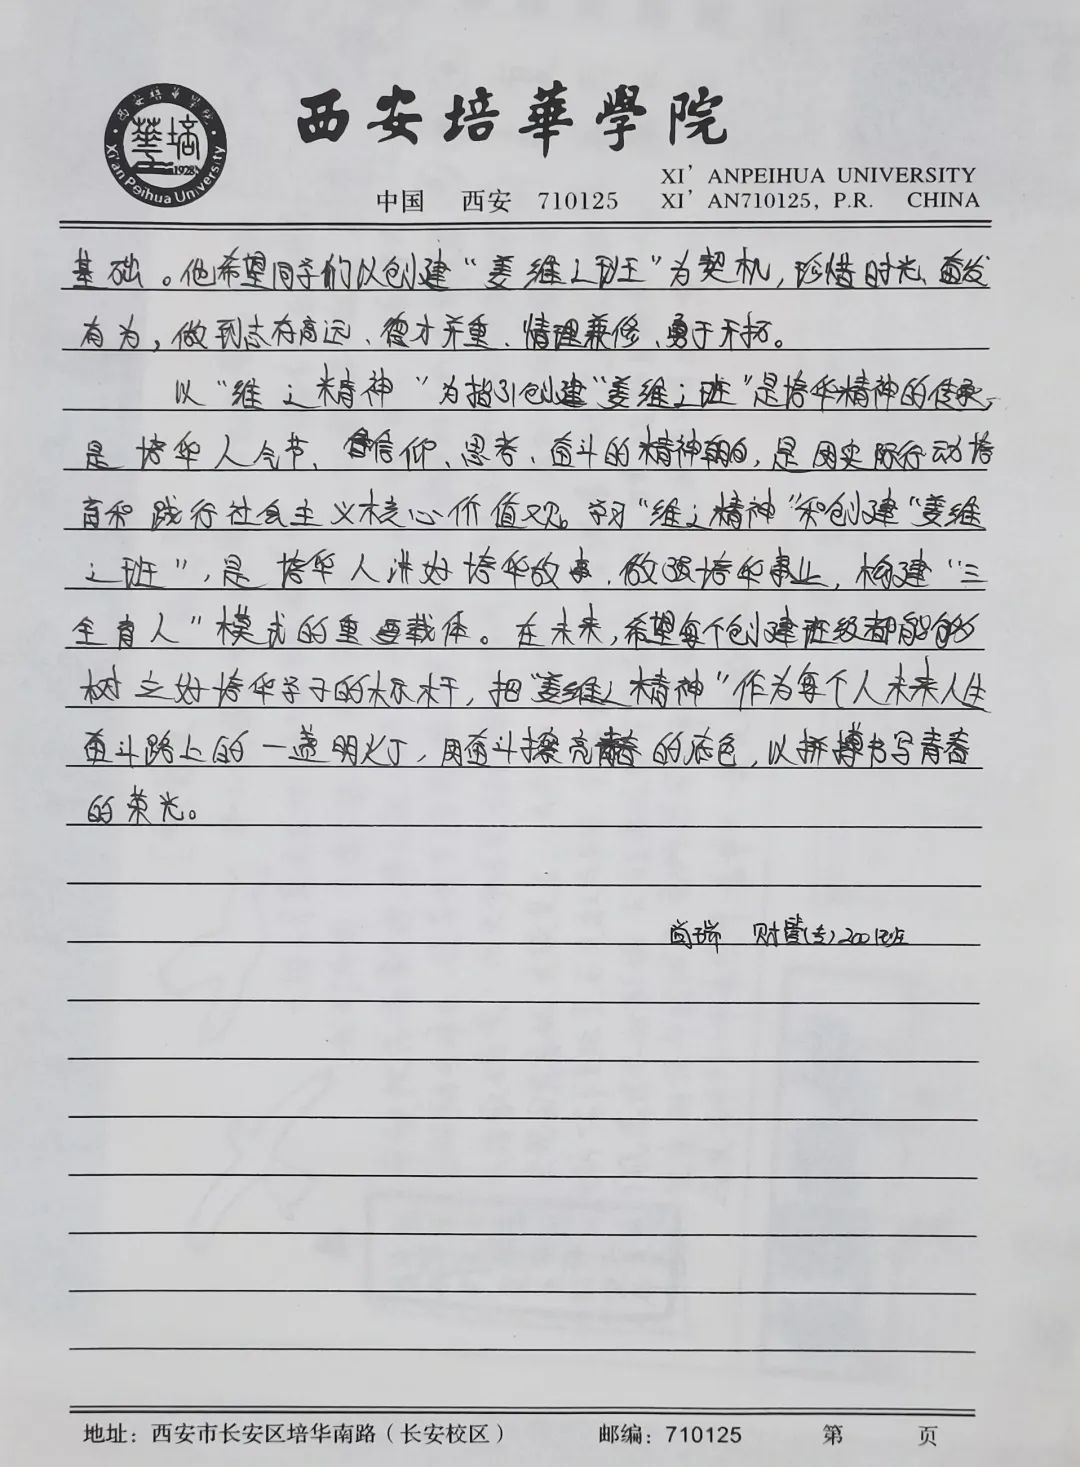 西安培華學院
西安培華學院
華培
1928
Xi'an Peihua University
XI' ANPEIHUA UNIVERSITY
中国 西安 710125 XI' AN710125, P.R. CHINA
基础。他希望同学们以创建“姜维之班”为契机，珍惜时光、奋发
有为，做到志存高远、德才并重、情理兼修、勇于开拓。
以“维之精神”为指引创建“姜维之班”是培华精神的传承，
是培华人气节、信仰、思考、奋斗的精神，是用实际行动培
育和践行社会主义核心价值观。学习“维之精神”和创建“姜维
之班”，是培华人讲好培华故事，做强培华事业，构建“三
全育人”模式的重要载体。在未来，希望每个创建班级都能够
树立好培华学子的标杆，把“姜维之精神”作为每个人未来人生
奋斗路上的一盏明灯，用奋斗擦亮青春的底色，以拼搏书写青春
的荣光。
尚瑞 财管(专)2001班
地址：西安市长安区培华南路（长安校区） 邮编：710125 第 页